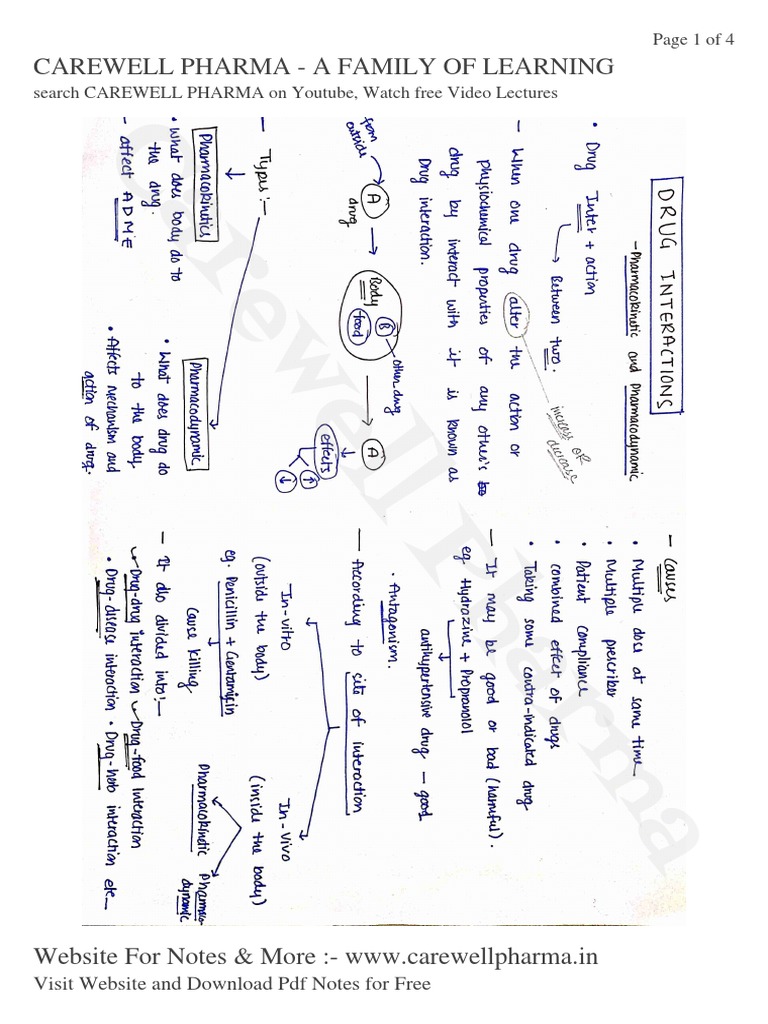 Page 1 of 4
CAREWELL PHARMA - A FAMILY OF LEARNING
search CAREWELL PHARMA on Youtube, Watch free Video Lectures
DRUG INTERACTIONS
- Pharmacokinetic and Pharmacodynamic
• Drug Inter + action
Between two.
- When one drug alter the action or
increase or
decrease
physiochemical properties of any other's
drug by interact with it is known as
Drug interaction.
from
outside
A
drug
Body
B
food
other drug
A
effects
↑
↓
- Types :-
Pharmacokinetics
• What does body do to
the drug.
- affect ADME
Pharmacodynamic
• What does drug do
to the body
• Affects mechanism and
action of drug.
- Causes
• Multiple dose at same time
• Multiple prescriber
• Patient compliance
• combined effect of drugs
• Taking some contra-indicated drug
- It may be good or bad (harmful).
eg Hydrozine + Propranolol
antihypertensive drug - good
• Antagonism.
- According to site of interaction
In-vitro
(outside the body)
eg. Penicillin + Gentamicin
Cause killing
In-Vivo
(inside the body)
Pharmacokinetic
Pharmaco-
dynamic
- It also divided into:-
Drug-drug interaction
Drug-food Interaction
• Drug-disease interaction
• Drug-herb interaction etc
Carewell Pharma
Website For Notes & More :- www.carewellpharma.in
Visit Website and Download Pdf Notes for Free